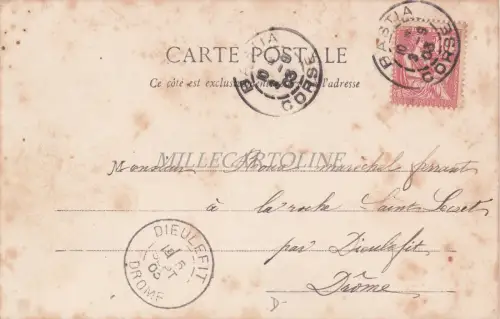 CARTE POSTALE
Ce côté est exclus l'adresse
BASTIA
CORSE
BASTIA
CORSE
MILLECARTOLINE
Monsieur maréchal ferrant
à la roche Saint Secret
par Dieulefit
Drôme
DIEULEFIT
DROME
D-